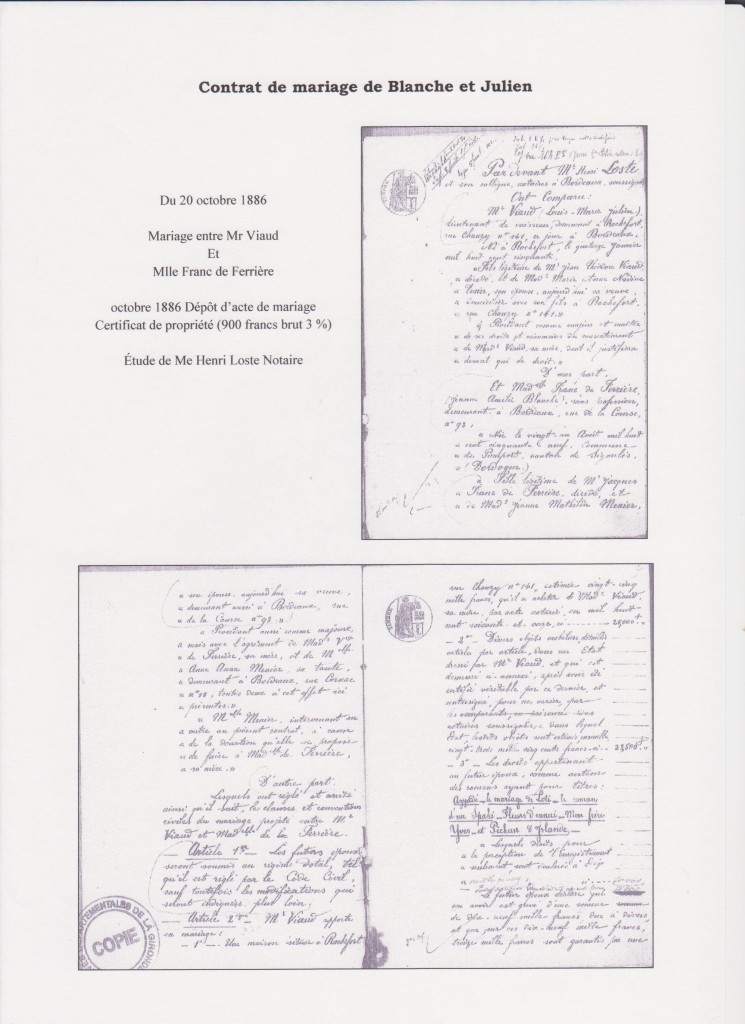 Contrat de mariage de Blanche et Julien
Du 20 octobre 1886
Mariage entre Mr Viaud
Et
Mlle Franc de Ferrière
octobre 1886 Dépôt d'acte de mariage
Certificat de propriété (900 francs brut 3 %)
Étude de Me Henri Loste Notaire
Par devant Me Henri Loste
et son collègue, notaires à Bordeaux, soussignés
Ont Comparu:
Mr Viaud (Louis-Marie Julien),
lieutenant de vaisseau, demeurant à Rochefort,
rue Chanzy n° 141, à Bordeaux.
Né à Rochefort, le quatorze janvier
mil huit cent cinquante,
« Fils légitime de Mr Jean Théodore Viaud,
« décédé, et de Made Marie Anne Nadine
« Texier, son épouse, aujourd'hui sa veuve,
« avec son fils à Rochefort,
« rue Chanzy n° 141. »
« Procédant comme majeur et maître
« de ses droits et du consentement
« de Made Viaud, sa mère, dont il justifiera
« devant qui de droit. »
D'une part.
Et Madelle Franc de Ferrière,
(Jeanne Amélie Blanche), sans profession,
demeurant à Bordeaux, rue de la Course,
n° 98,
« Née le vingt-un Août mil huit
« cent cinquante neuf, commune
« de Pomport, canton de Sigoulès,
« (Dordogne.)
« Fille légitime de Mr Jacques
« Franc de Ferrière, décédé, et
« de Made Jeanne Mathilde Menier,
« son épouse, aujourd'hui sa veuve,
« demeurant aussi à Bordeaux, rue
« de la Course n° 98. »
« Procédant aussi comme majeure,
« mais avec l'agrément de Made
« de Ferrière, sa mère, et de Melle
« Anne Menier, sa tante,
« demeurant à Bordeaux, rue
« toutes deux à cet effet ici
« présentes. »
« Melle Menier, intervenant en
« outre au présent contrat, à cause
« de la donation qu'elle se propose
« de faire à Madelle de Ferrière,
« sa nièce. »
D'autre part.
Lesquels ont réglé et arrêté
ainsi qu'il suit, les clauses et conventions
civiles du mariage projeté entre Mr
Viaud et Madelle de la Ferrière.
Article 1er Les futurs époux
seront soumis au régime dotal, tel
qu'il est réglé par le Code Civil,
sauf toutefois les modifications qui
seront indiquées plus loin.
Article 2e Mr Viaud apporte
en mariage:
1° Une maison située à Rochefort
rue Chanzy n° 141, estimée vingt-cinq
mille francs, qu'il a achetée de Made Viaud,
sa mère, par acte notarié, en mil huit
cent soixante et onze, ci 25000 f
2° Divers objets mobiliers détaillés
article par article, dans un état
dressé par Mr Viaud, et qui est
demeuré ci-annexé, après avoir été
certifié véritable par ce dernier, et
notaires soussignés, dans lequel
état lesdits objets sont estimés, ensemble
vingt-trois mille cinq cents francs ci 23500 f
3° Les droits appartenant
au futur époux, comme auteur
des romans ayant pour titres:
Aziyadé, le mariage de Loti, le roman
d'un Spahi, Fleurs d'ennui, Mon frère
Yves et Pêcheur d'Islande,
« Lesquels droits pour
« la perception de l'Enregistrement
Le futur époux déclare qu'il
de dix-neuf mille francs due à divers,
et que sur ces dix-neuf mille francs,
treize mille francs sont garantis par une
COPIE